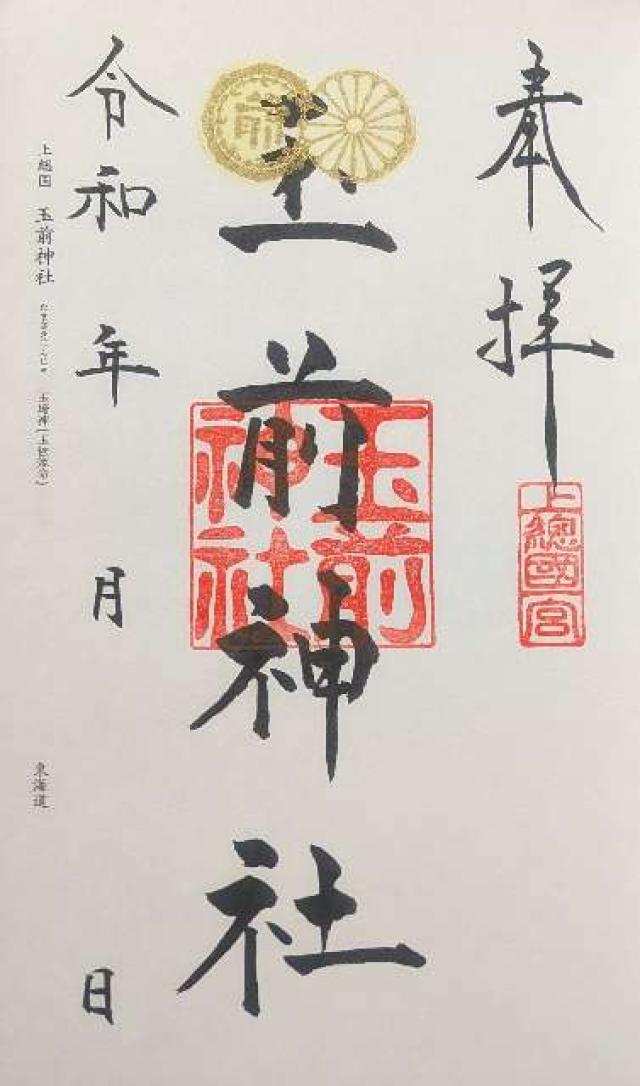 奉拝
上總國一宮
玉前神社
玉前神社
前
令和 年 月 日
上総国 玉前神社 たまさきじんじゃ 玉埼神(玉依姫命)
東海道